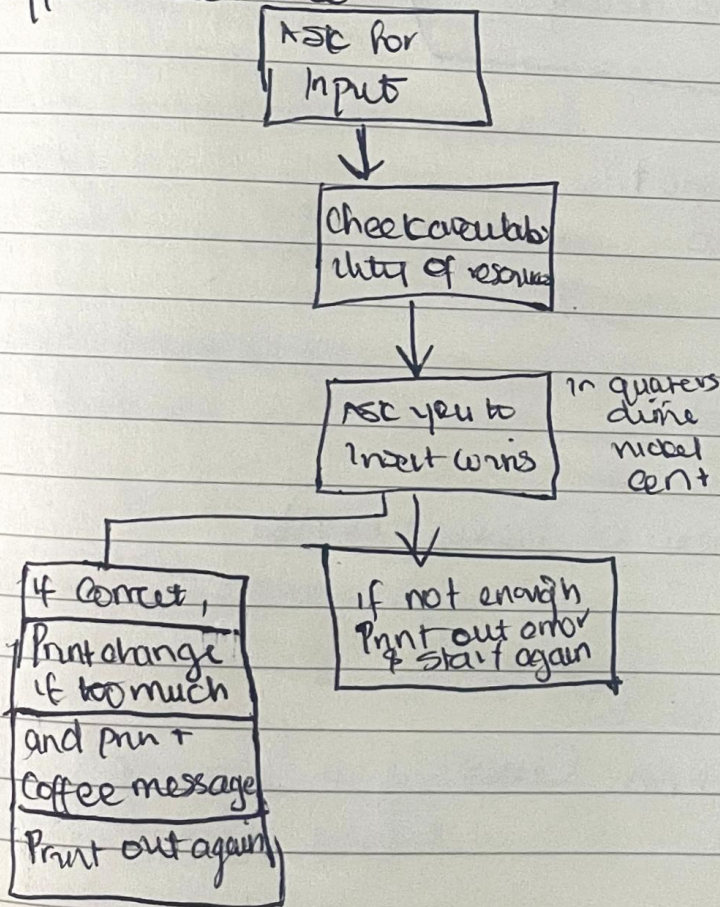 Ask for
Input
Check availab
ility of resources
Ask you to
Insert coins
in quaters
dime
nickel
cent
if Correct,
Print change
if too much
and print
Coffee message
Print out again
if not enough
Print out error
& start again